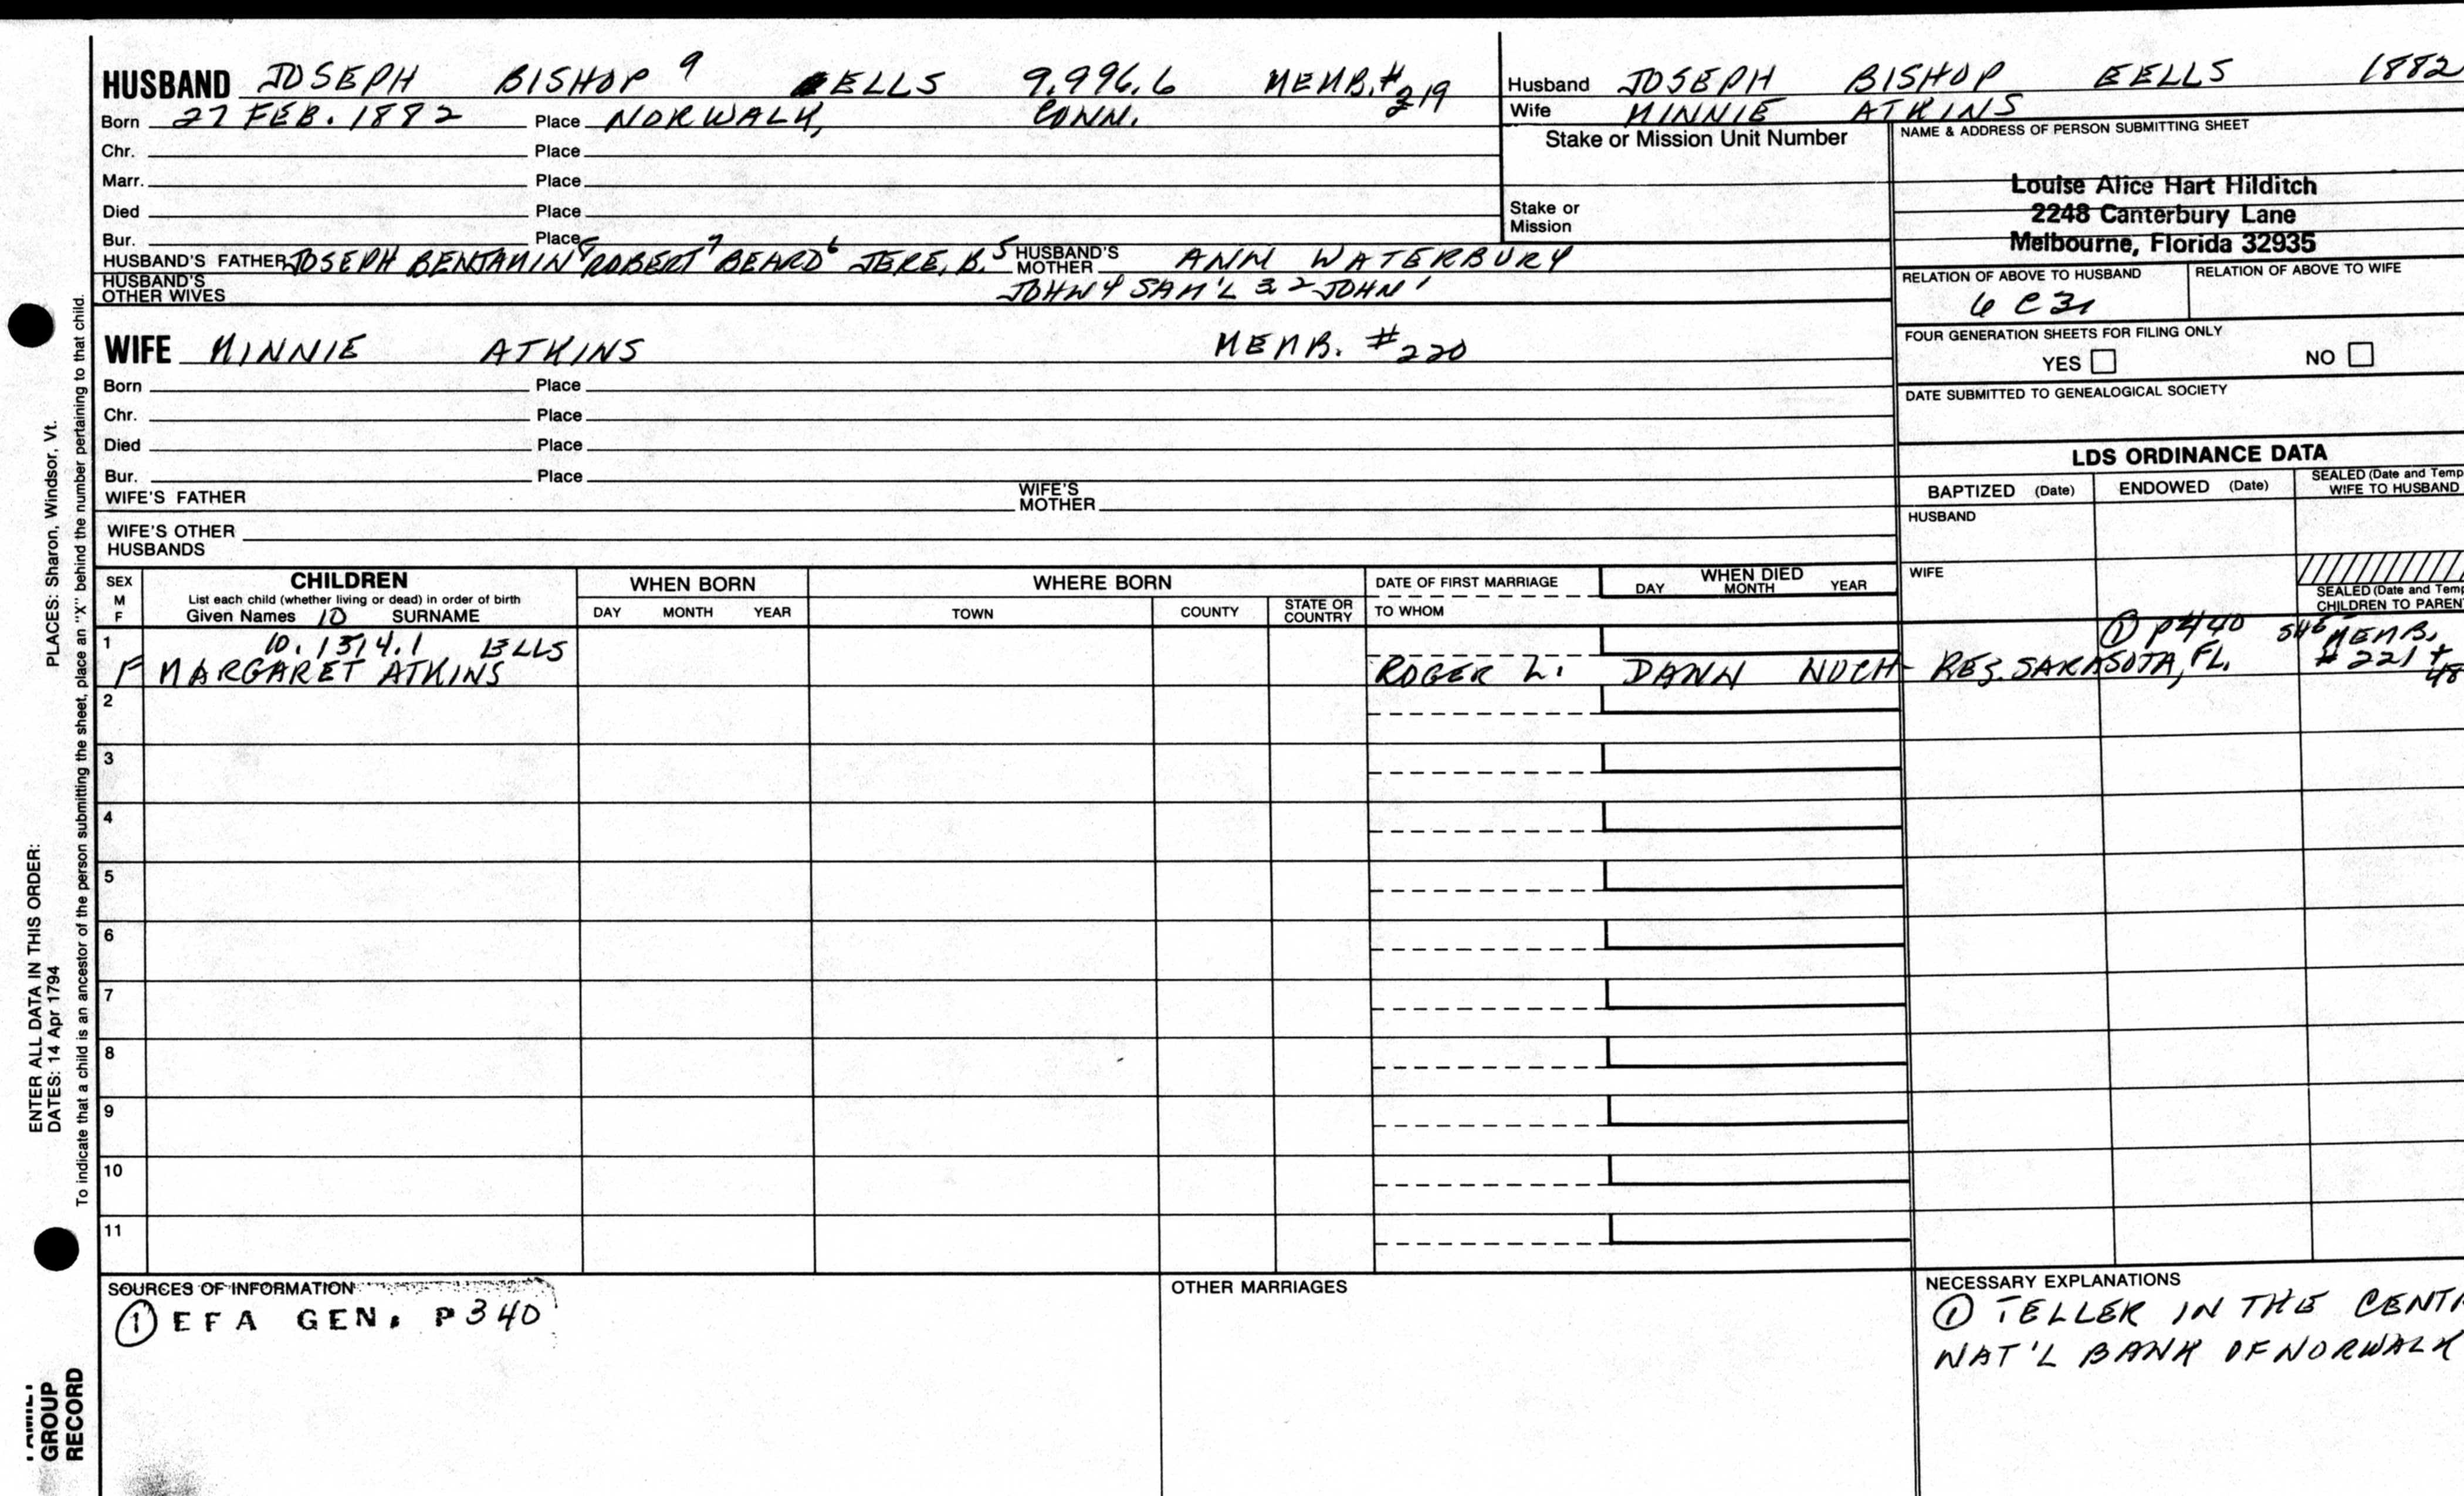 HUSBAND JOSEPH BISHOP 9 EELLS 9.996.6 MEMB.# 219
Born 27 FEB. 1882 Place NORWALK, CONN.
Chr. Place
Marr. Place
Died Place
Bur. Place
HUSBAND'S FATHER JOSEPH BENJAMIN 8 ROBERT 7 BEARD 6 JERE. B. 5 HUSBAND'S MOTHER ANN WATERBURY
HUSBAND'S OTHER WIVES JOHN 4 SAM'L 3 2 JOHN 1
WIFE MINNIE ATKINS MEMB. #220
Born Place
Chr. Place
Died Place
Bur. Place
WIFE'S FATHER WIFE'S MOTHER
WIFE'S OTHER HUSBANDS
Husband JOSEPH BISHOP EELLS 1882
Wife MINNIE ATKINS
Stake or Mission Unit Number
Stake or
Mission
NAME & ADDRESS OF PERSON SUBMITTING SHEET
Louise Alice Hart Hilditch
2248 Canterbury Lane
Melbourne, Florida 32935
RELATION OF ABOVE TO HUSBAND RELATION OF ABOVE TO WIFE
FOUR GENERATION SHEETS FOR FILING ONLY
YES NO
DATE SUBMITTED TO GENEALOGICAL SOCIETY
LDS ORDINANCE DATA
BAPTIZED (Date) ENDOWED (Date) SEALED (Date and Temp
WIFE TO HUSBAND
HUSBAND
WIFE
SEALED (Date and Temp
CHILDREN TO PAREN
SEX M F
CHILDREN
List each child (whether living or dead) in order of birth
Given Names 10 SURNAME
WHEN BORN
DAY MONTH YEAR
WHERE BORN
TOWN COUNTY STATE OR COUNTRY
DATE OF FIRST MARRIAGE
TO WHOM
WHEN DIED
DAY MONTH YEAR
1 10.1514.1 EELLS ① P440 SHE MEMB.
F MARGARET ATKINS ROGER L. DANN NOCH- RES. SARASOTA, FL. #221 +
2
3
4
5
6
7
8
9
10
11
SOURCES OF INFORMATION
① EFA GEN. P340
OTHER MARRIAGES
NECESSARY EXPLANATIONS
① TELLER IN THE CENT
NAT'L BANK OF NORWALK
PLACES: Sharon, Windsor, Vt.
ENTER ALL DATA IN THIS ORDER:
DATES: 14 Apr 1794
To indicate that a child is an ancestor of the person submitting the sheet, place an "X" behind the number pertaining to that child.
GROUP
RECORD